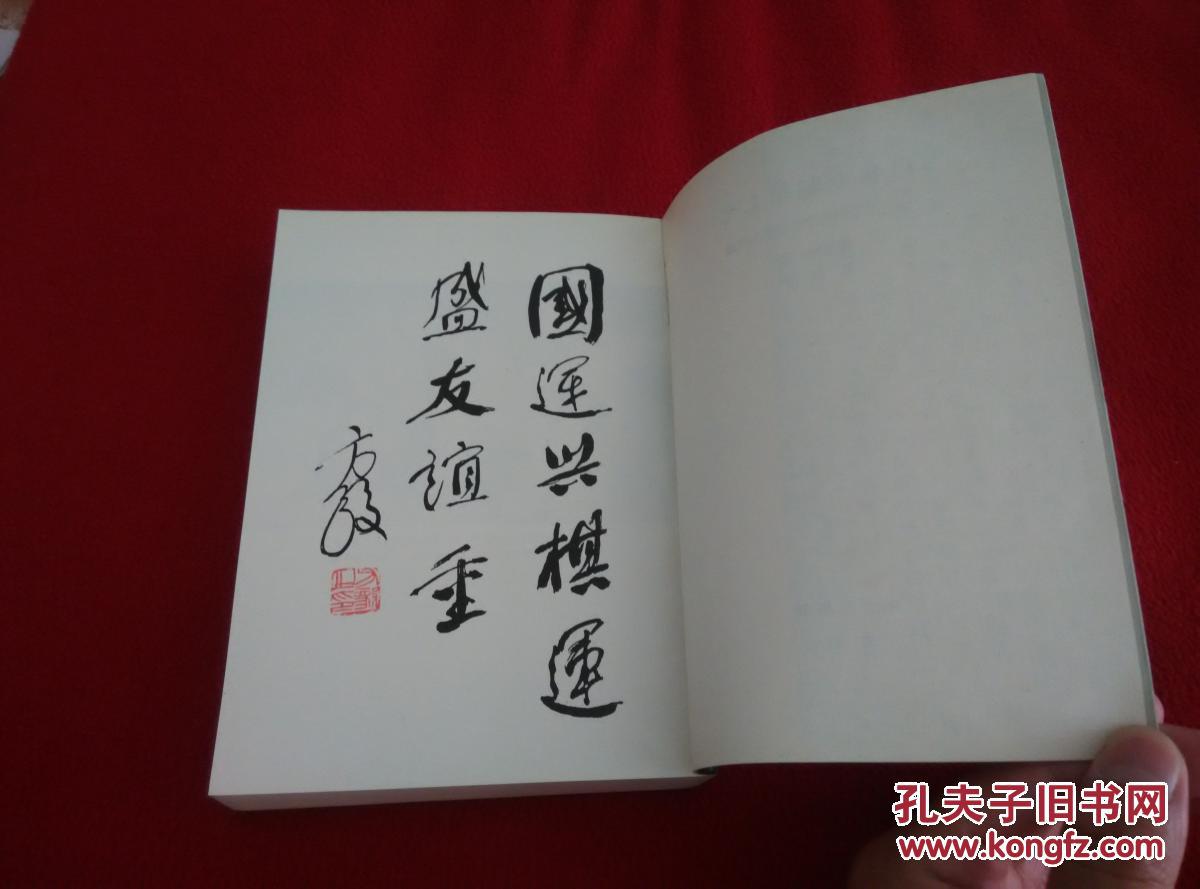 國運兴棋運
盛友誼重
方毅
孔夫子旧书网
www.kongfz.com